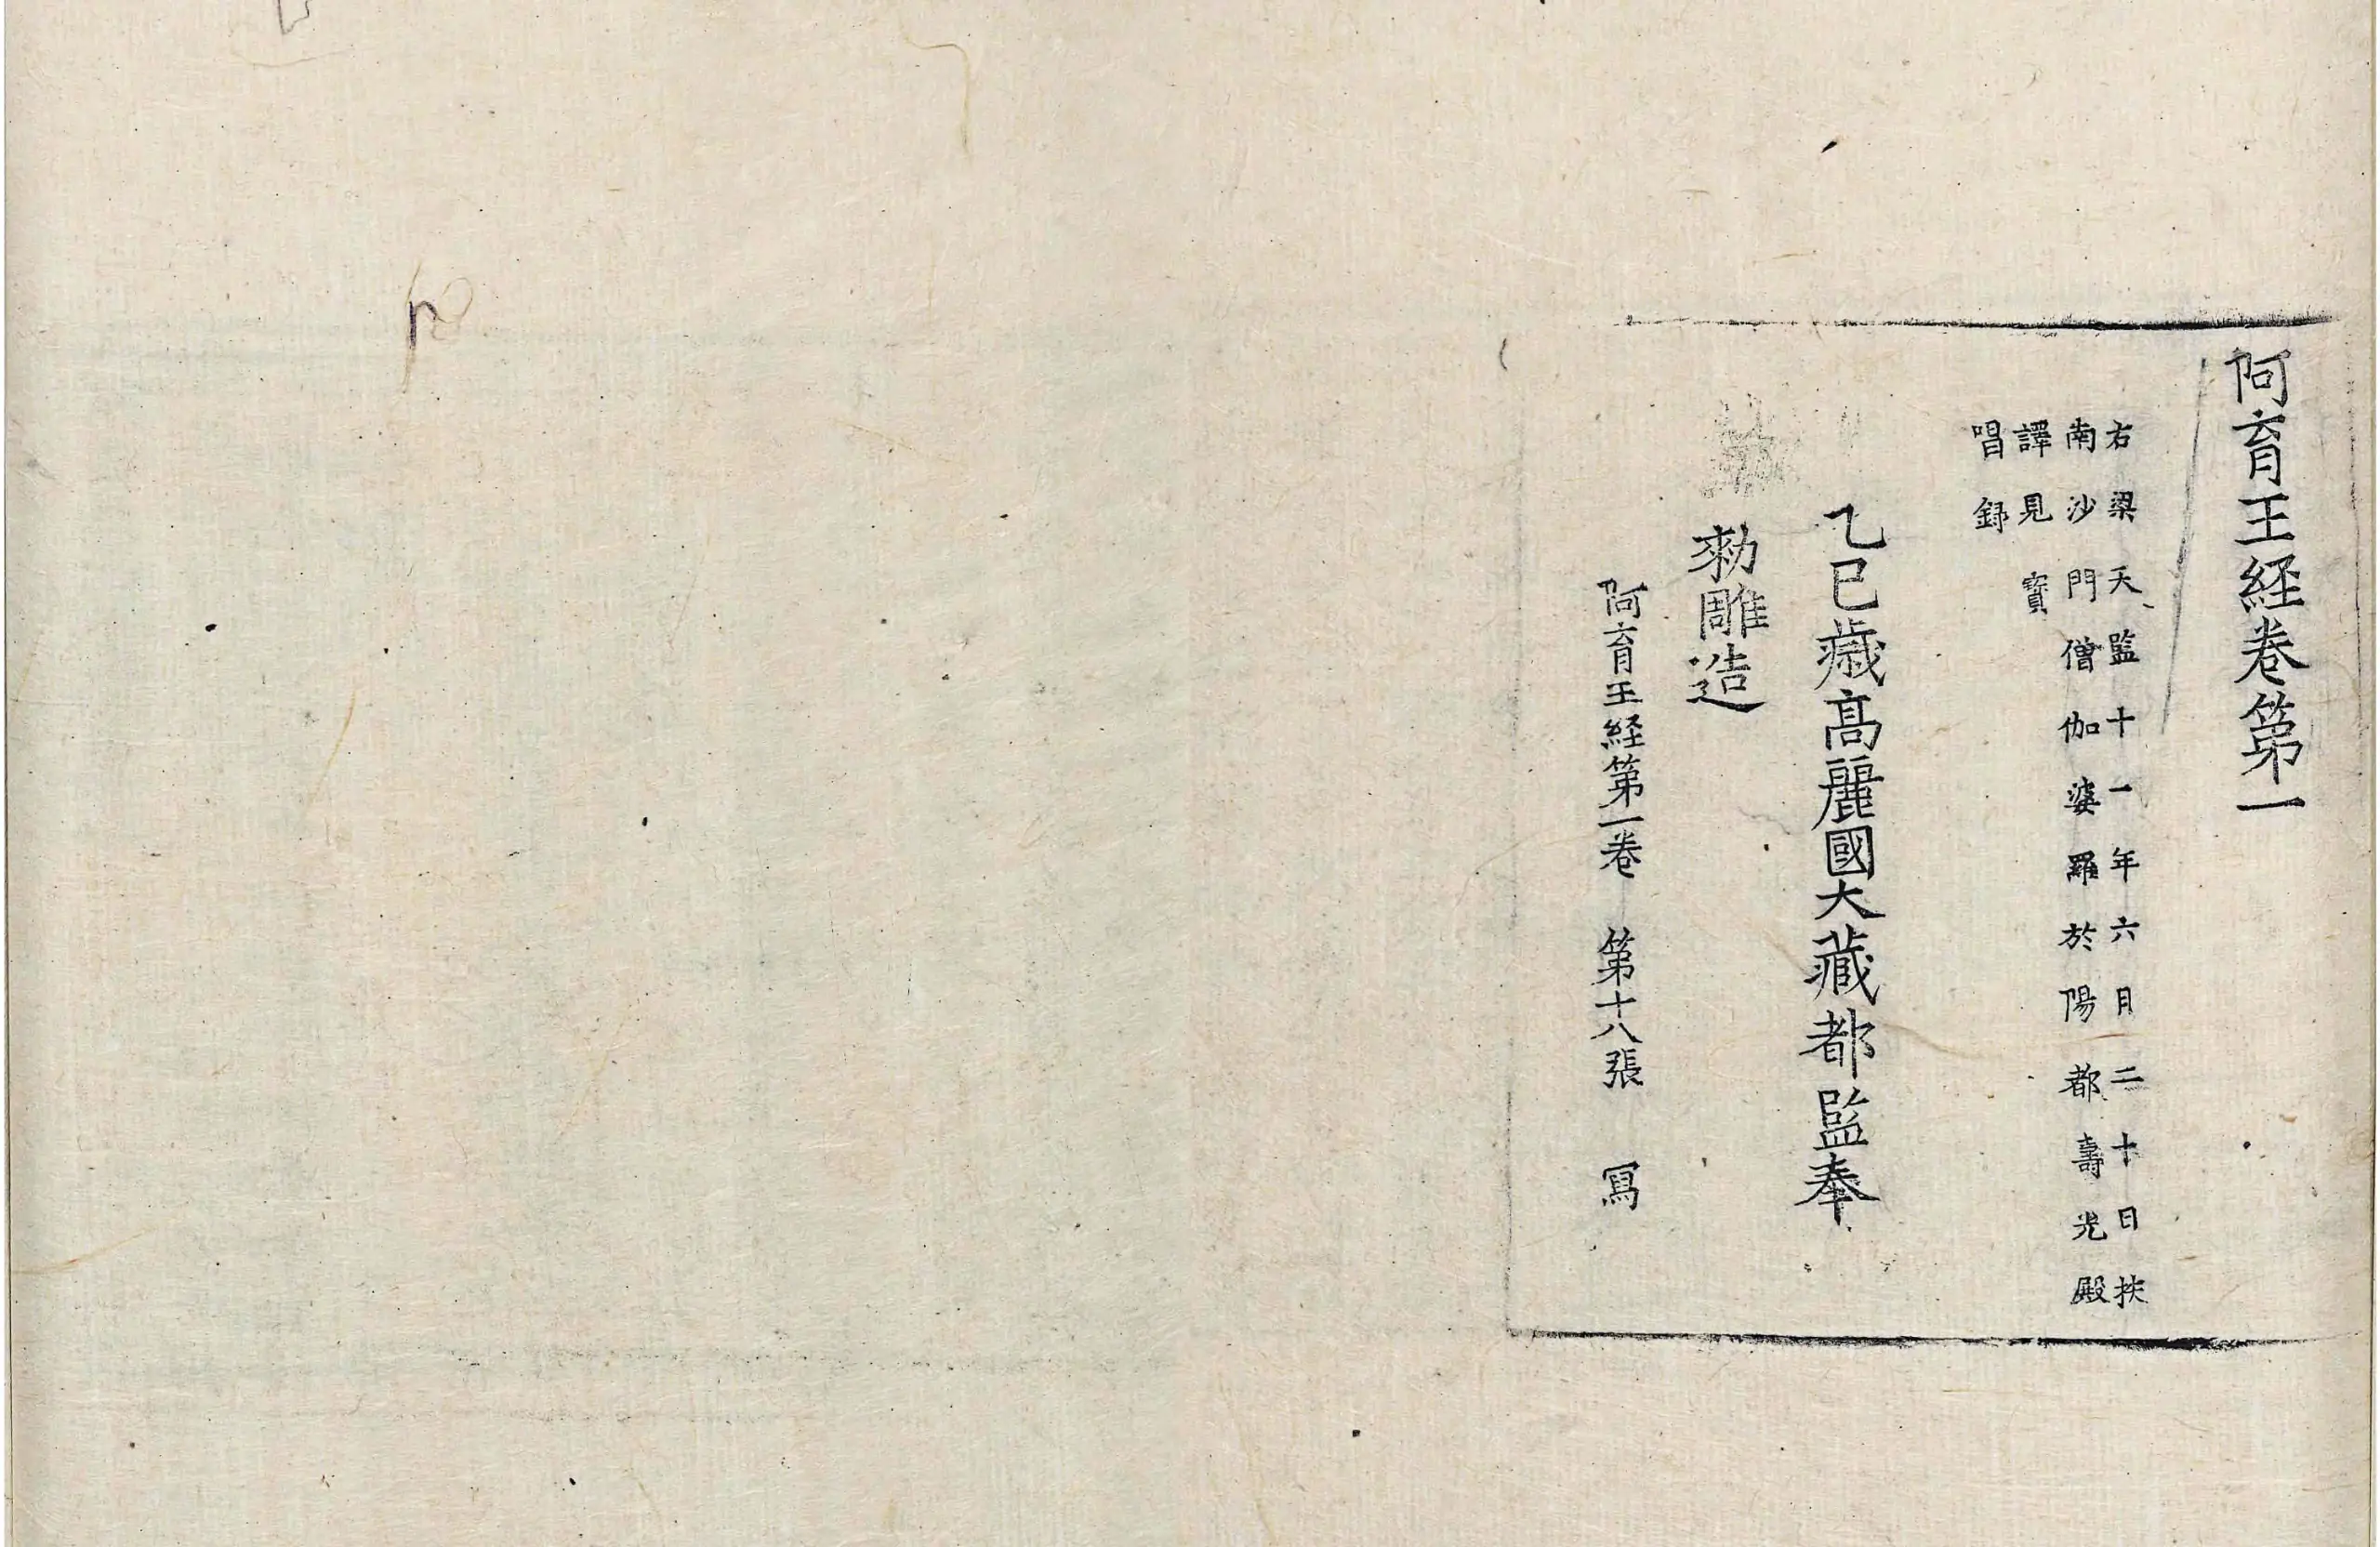 阿育王経卷第一
右梁天監十一年六月二十日扶
南沙門僧伽婆羅於陽都壽光殿
譯見寳
唱録
乙巳歲高麗國大藏都監奉
勅雕造
阿育王経第一卷 第十八張 冩